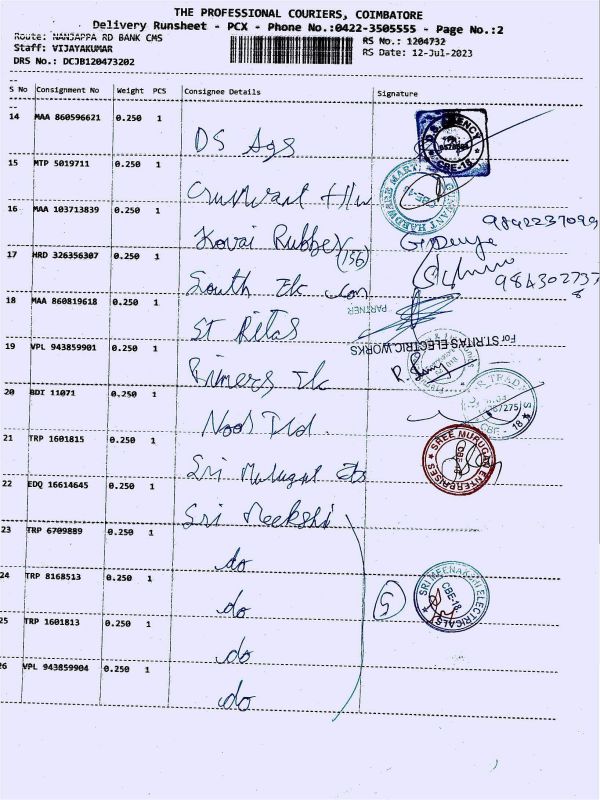 THE PROFESSIONAL COURIERS, COIMBATORE
Delivery Runsheet - PCX - Phone No.:0422-3505555 - Page No.:2
Route: NANJAPPA RD BANK CMS
RS No.: 1204732
Staff: VIJAYAKUMAR
RS Date: 12-Jul-2023
DRS No.: DCJB120473202
S No Consignment No Weight PCS Consignee Details Signature
14 MAA 860596621 0.250 1
D.S. AGENCY
CBE-18
DS Ags
15 MTP 5019711 0.250 1
HARDWARE MART
H/w
16 MAA 103713839 0.250 1
9842237099
Kovai Rubber
(156)
17 HRD 326356307 0.250 1
South Ek con
984302737
8
18 MAA 860819618 0.250 1
PARTNER
St Ritas
For ST.RITAS ELECTRIC WORKS
19 VPL 943859901 0.250 1
Ek
20 BDI 11071 0.250 1
TRADERS
CBE - 18
21 TRP 1601815 0.250 1
SREE MURUGAN ENTERPRISES
CBE-18
Sri Murugan Ets
22 EDQ 16614645 0.250 1
Sri Meekshi
23 TRP 6709889 0.250 1
do
24 TRP 8168513 0.250 1
SRI MEENAKSHI ELECTRICALS
CBE-18
5
do
25 TRP 1601813 0.250 1
do
26 VPL 943859904 0.250 1
do